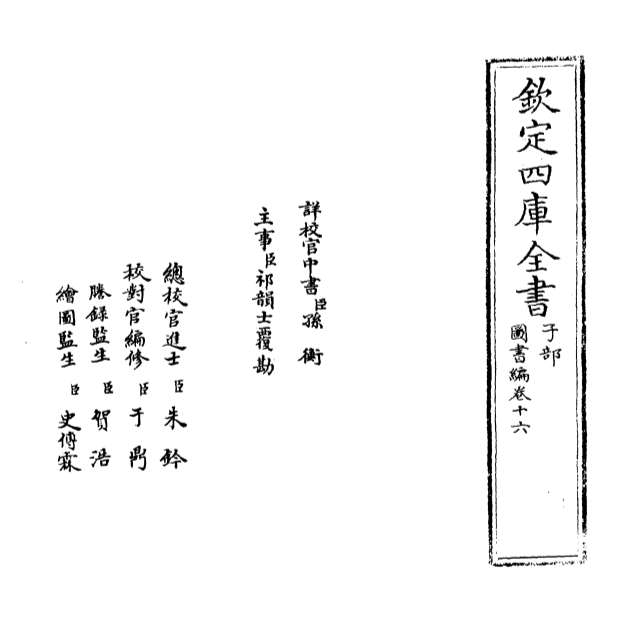 欽定四庫全書
子部
圖書編卷十六
詳校官中書臣孫衡
主事臣祁韻士覆勘
總校官進士臣朱鈐
校對官編修臣于鼎
謄錄監生臣賀浩
繪圖監生臣史傳霖